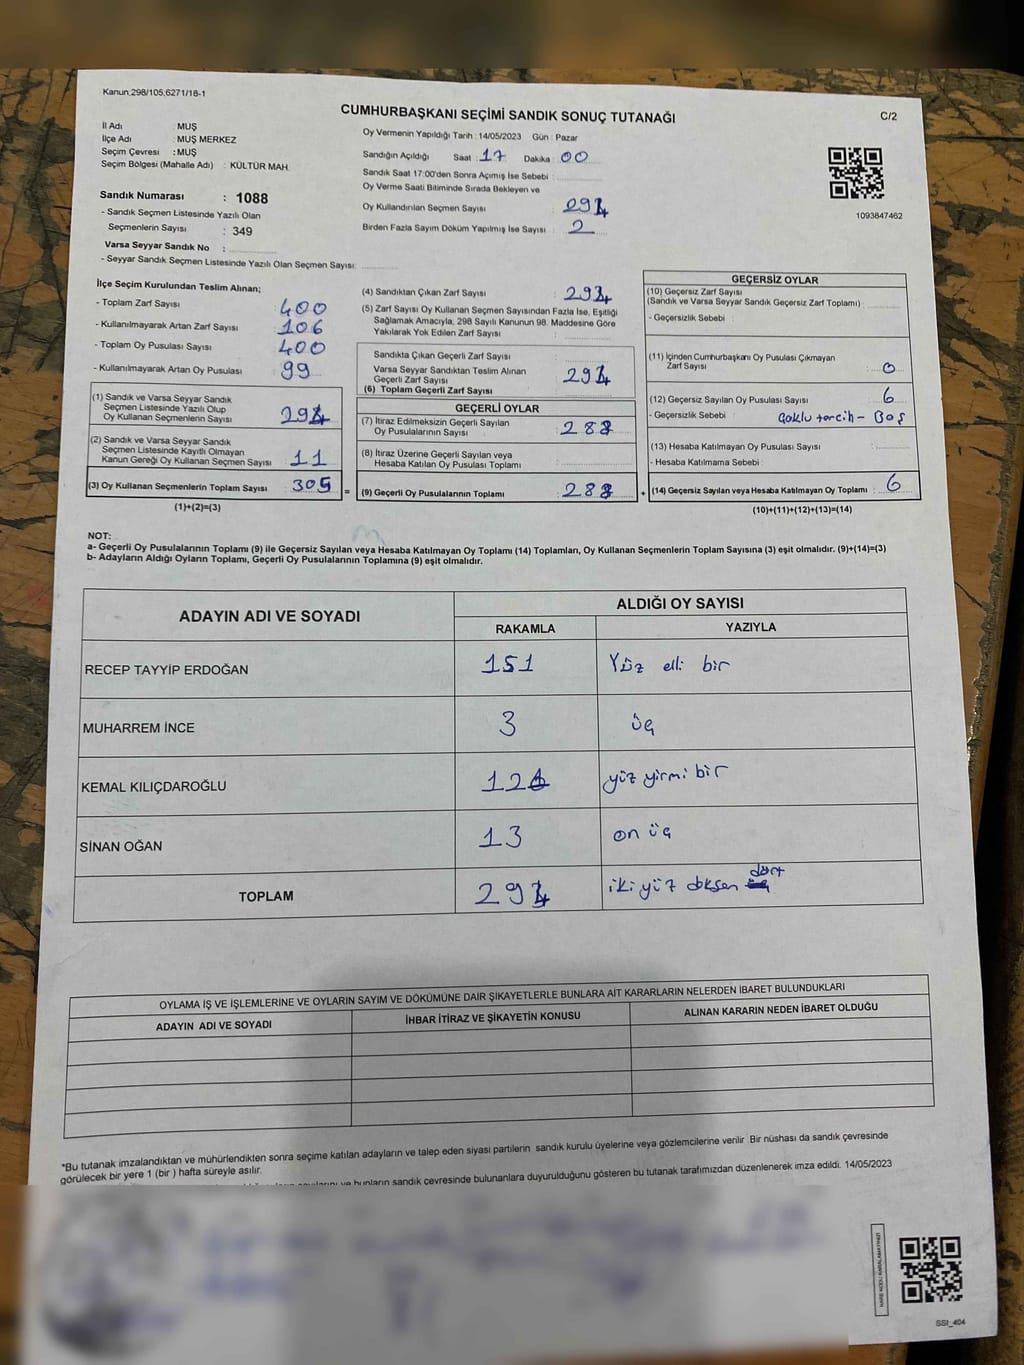 Kanun.298/105,6271/18-1
CUMHURBAŞKANI SEÇİMİ SANDIK SONUÇ TUTANAĞI
C/2
İl Adı : MUŞ
İlçe Adı : MUŞ MERKEZ
Seçim Çevresi : MUŞ
Seçim Bölgesi (Mahalle Adı) : KÜLTÜR MAH.
Sandık Numarası : 1088
- Sandık Seçmen Listesinde Yazılı Olan
Seçmenlerin Sayısı : 349
Varsa Seyyar Sandık No :
- Seyyar Sandık Seçmen Listesinde Yazılı Olan Seçmen Sayısı:
Oy Vermenin Yapıldığı Tarih : 14/05/2023 Gün : Pazar
Sandığın Açıldığı Saat : 17 Dakika : 00
Sandık Saat 17:00'den Sonra Açımış İse Sebebi :
Oy Verme Saati Bitiminde Sırada Bekleyen ve
Oy Kullandırılan Seçmen Sayısı : 294
Birden Fazla Sayım Döküm Yapılmış İse Sayısı : 2
1093847462
İlçe Seçim Kurulundan Teslim Alınan;
- Toplam Zarf Sayısı : 400
- Kullanılmayarak Artan Zarf Sayısı : 106
- Toplam Oy Pusulası Sayısı : 400
- Kullanılmayarak Artan Oy Pusulası : 99
(1) Sandık ve Varsa Seyyar Sandık
Seçmen Listesinde Yazılı Olup
Oy Kullanan Seçmenlerin Sayısı : 294
(2) Sandık ve Varsa Seyyar Sandık
Seçmen Listesinde Kayıtlı Olmayan
Kanun Gereği Oy Kullanan Seçmen Sayısı : 11
(3) Oy Kullanan Seçmenlerin Toplam Sayısı : 305
(1)+(2)=(3)
(4) Sandıktan Çıkan Zarf Sayısı : 294
(5) Zarf Sayısı Oy Kullanan Seçmen Sayısından Fazla İse, Eşitliği
Sağlamak Amacıyla, 298 Sayılı Kanunun 98. Maddesine Göre
Yakılarak Yok Edilen Zarf Sayısı :
Sandıkta Çıkan Geçerli Zarf Sayısı :
Varsa Seyyar Sandıktan Teslim Alınan
Geçerli Zarf Sayısı : 294
(6) Toplam Geçerli Zarf Sayısı
GEÇERLİ OYLAR
(7) İtiraz Edilmeksizin Geçerli Sayılan
Oy Pusulalarının Sayısı : 288
(8) İtiraz Üzerine Geçerli Sayılan veya
Hesaba Katılan Oy Pusulası Toplamı :
= (9) Geçerli Oy Pusulalarının Toplamı : 288 +
GEÇERSİZ OYLAR
(10) Geçersiz Zarf Sayısı
(Sandık ve Varsa Seyyar Sandık Geçersiz Zarf Toplamı) :
- Geçersizlik Sebebi :
(11) İçinden Cumhurbaşkanı Oy Pusulası Çıkmayan
Zarf Sayısı : 0
(12) Geçersiz Sayılan Oy Pusulası Sayısı : 6
- Geçersizlik Sebebi : Çoklu tercih - Boş
(13) Hesaba Katılmayan Oy Pusulası Sayısı :
- Hesaba Katılmama Sebebi :
(14) Geçersiz Sayılan veya Hesaba Katılmayan Oy Toplamı : 6
(10)+(11)+(12)+(13)=(14)
NOT:
a- Geçerli Oy Pusulalarının Toplamı (9) ile Geçersiz Sayılan veya Hesaba Katılmayan Oy Toplamı (14) Toplamları, Oy Kullanan Seçmenlerin Toplam Sayısına (3) eşit olmalıdır. (9)+(14)=(3)
b- Adayların Aldığı Oyların Toplamı, Geçerli Oy Pusulalarının Toplamına (9) eşit olmalıdır.
ADAYIN ADI VE SOYADI ALDIĞI OY SAYISI
RAKAMLA YAZIYLA
RECEP TAYYİP ERDOĞAN 151 Yüz elli bir
MUHARREM İNCE 3 üç
KEMAL KILIÇDAROĞLU 121 yüz yirmi bir
SİNAN OĞAN 13 on üç
TOPLAM 294 iki yüz doksan dört
OYLAMA İŞ VE İŞLEMLERİNE VE OYLARIN SAYIM VE DÖKÜMÜNE DAİR ŞİKAYETLERLE BUNLARA AİT KARARLARIN NELERDEN İBARET BULUNDUKLARI
ADAYIN ADI VE SOYADI İHBAR İTİRAZ VE ŞİKAYETİN KONUSU ALINAN KARARIN NEDEN İBARET OLDUĞU
*Bu tutanak imzalandıktan ve mühürlendikten sonra seçime katılan adayların ve talep eden siyasi partilerin sandık kurulu üyelerine veya gözlemcilerine verilir Bir nüshası da sandık çevresinde
görülecek bir yere 1 (bir ) hafta süreyle asılır.
ve bunların sandık çevresinde bulunanlara duyurulduğunu gösteren bu tutanak tarafımızdan düzenlenerek imza edildi. 14/05/2023
SSI_404